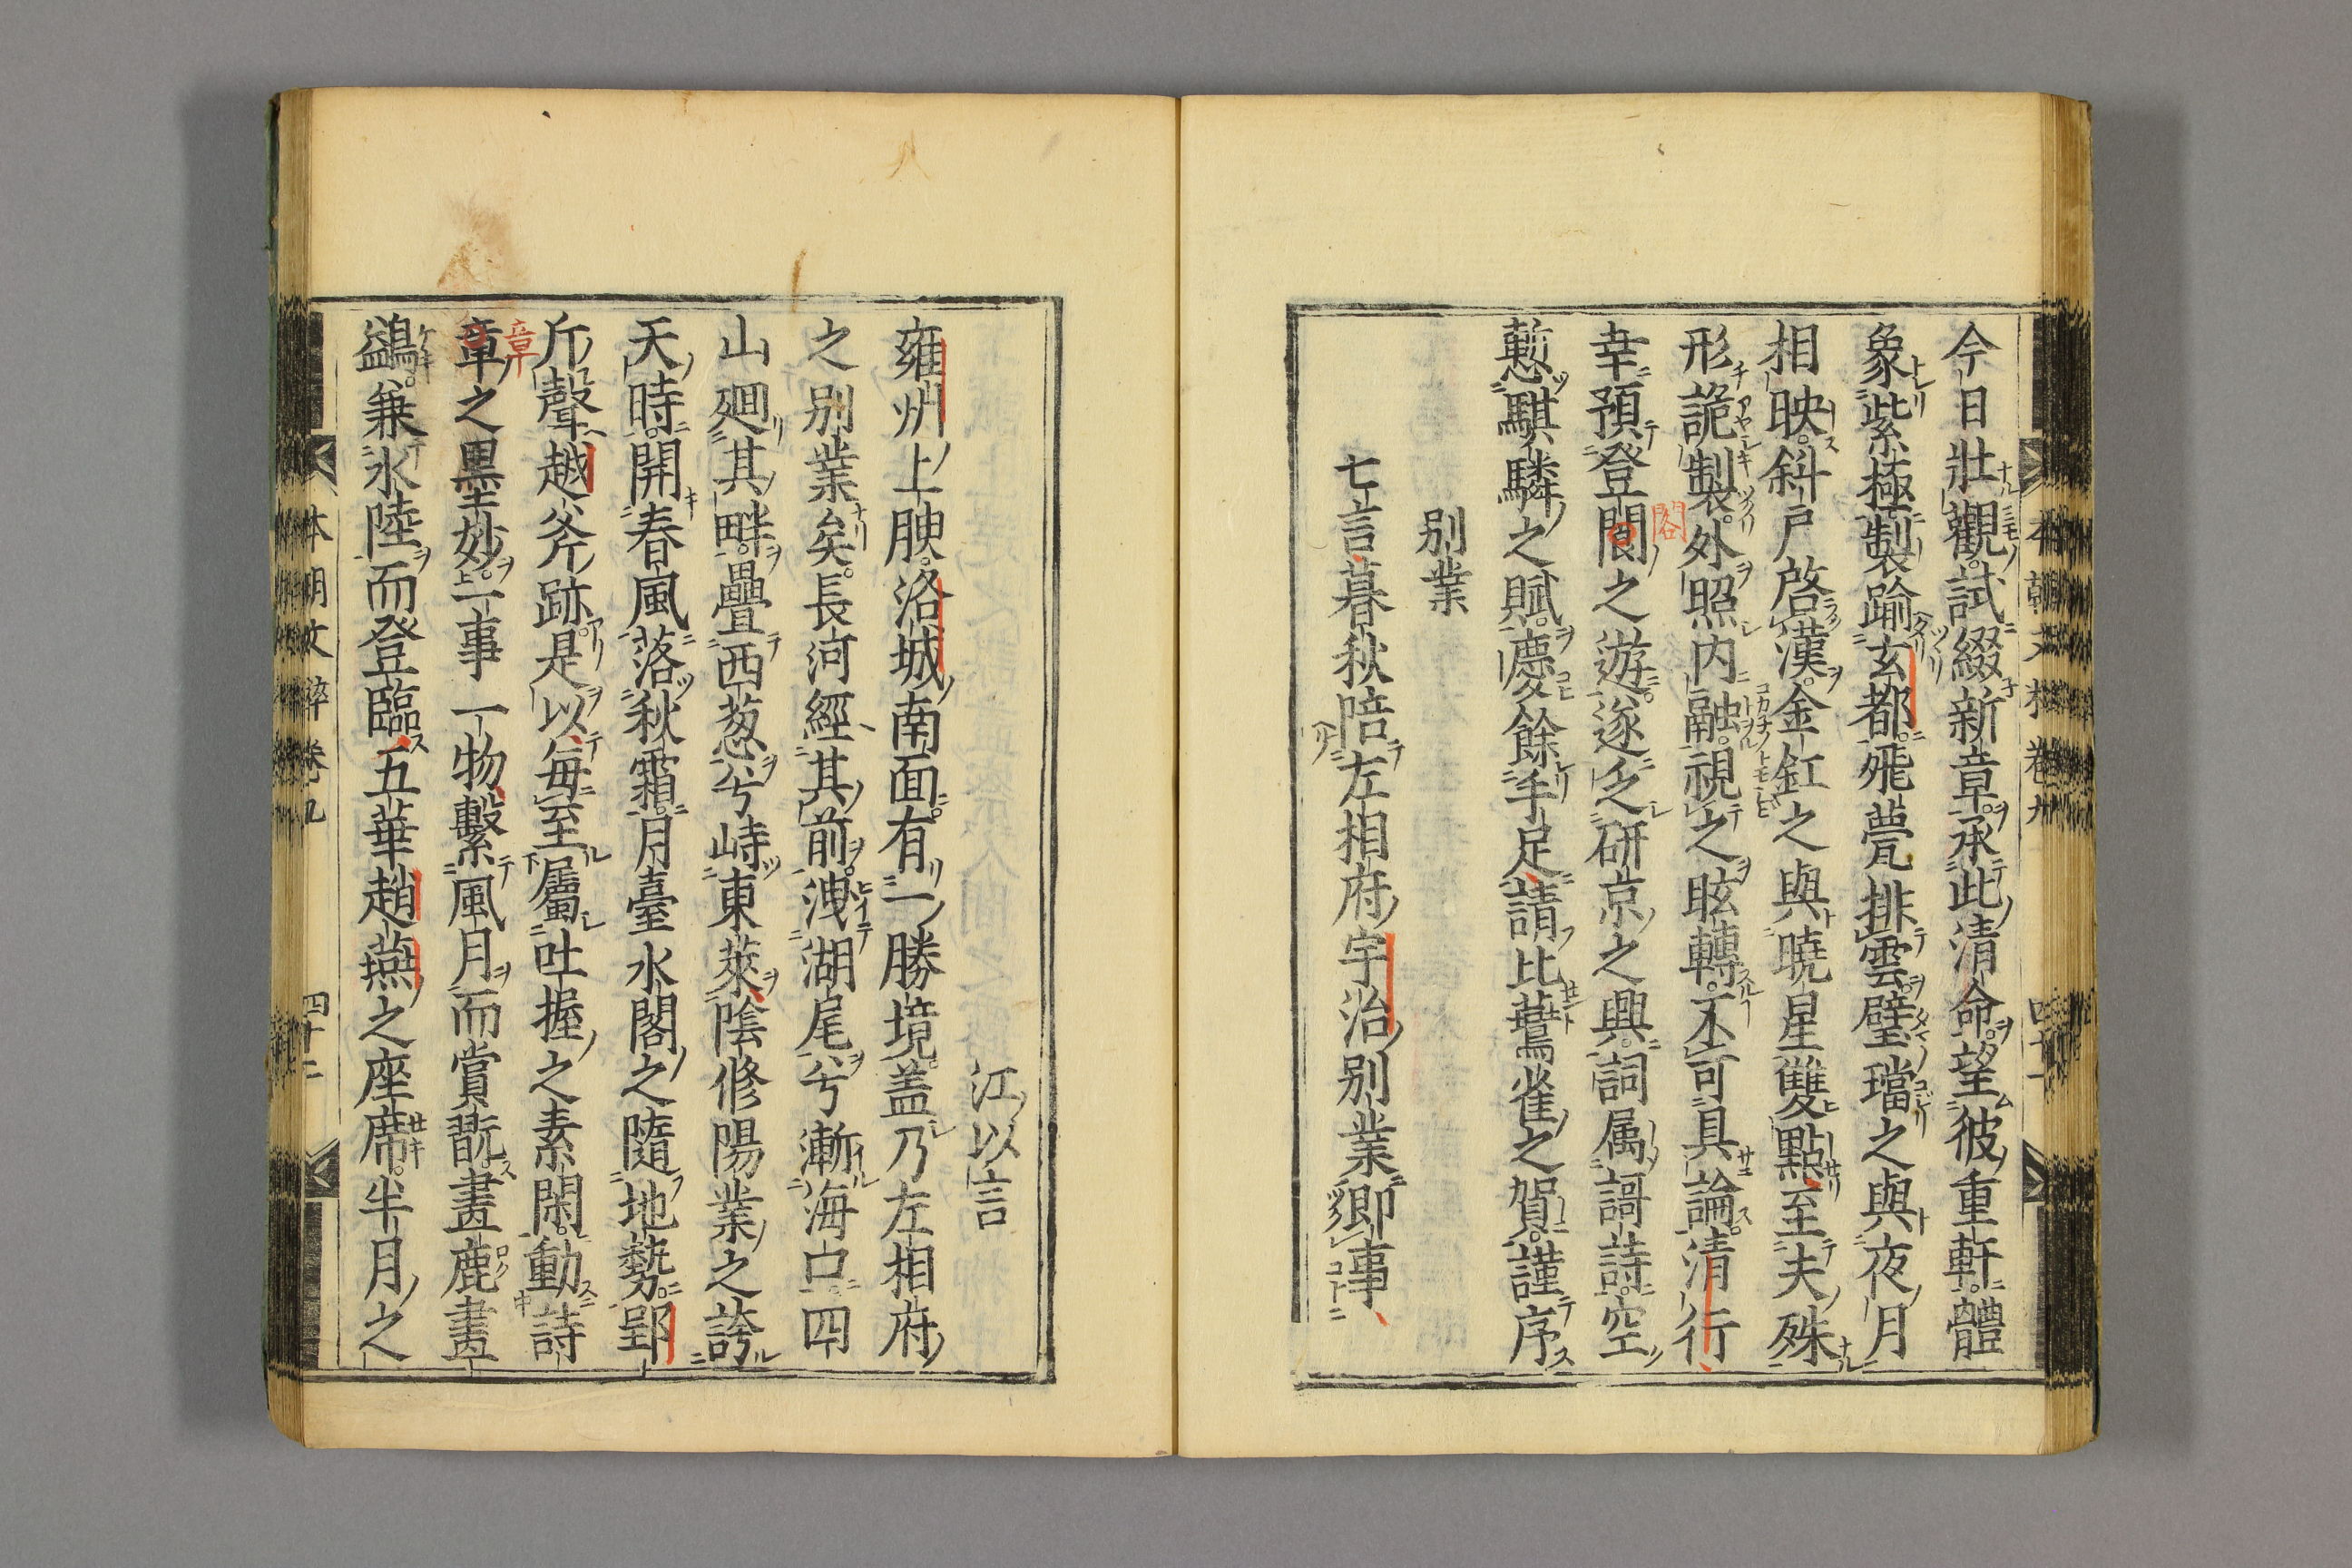 今日壯觀試綴新章承此清命望彼重軒體
象紫極製踰玄都飛甍排雲璧璫之與夜月
相映斜戸啓漢金釭之與曉星雙點至夫殊
形詭製外照內融視之眩轉不可具論清行
幸預登閣之遊逐乏研京之興詞属謌詩空
慙騏驎之賦慶餘手足請比鷰雀之賀謹序
別業
七言暮秋陪左相府宇治別業卽事
江以言
雍州上腴洛城南面有一勝境盖乃左相府
之別業矣長河經其前洩湖尾兮漸海口四
山廻其畔疊西葱兮峙東萊陰修陽業之誇
天時開春風落秋霜月臺水閣之隨地勢郢
斤聲越斧跡是以每至屬吐握之素閑動詩
章之墨妙一事一物繫風月而賞翫畫鹿畫
鷁兼水陸而登臨五華趙燕之座席半月之
本朝文粹卷九
四十一
本朝文粹卷九
四十二
閣
章